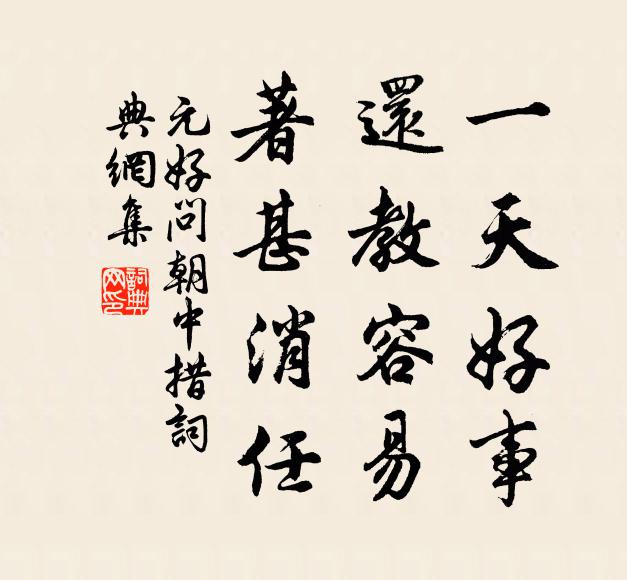 一天好事
還教容易
著甚消任
元好問朝中措詞
典網集
詞典
网印